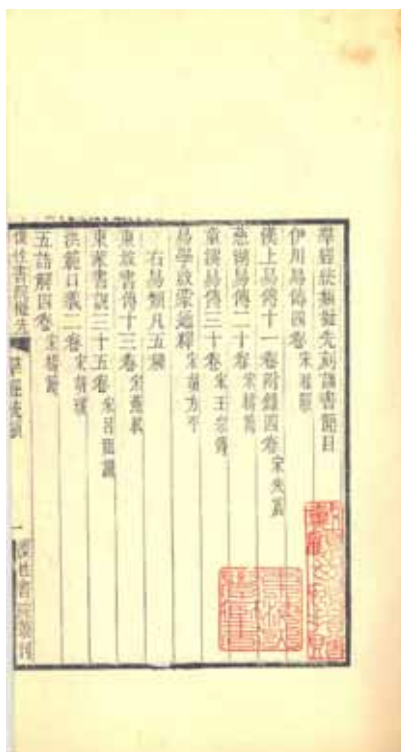 羣經統類擬先刻諸書簡目
伊川易傳四卷宋程頤
漢上易傳十一卷附錄四卷宋朱震
慈湖易傳二十卷宋楊簡
童溪易傳三十卷宋王宗傳
易學啟蒙通釋宋胡方平
右易類凡五種
東坡書傳十三卷宋蘇軾
東萊書說三十五卷宋呂祖謙
洪範口義二卷宋胡瑗
五誥解四卷宋楊簡
復性書院擬先
羣經統類
一
復性書院叢刊